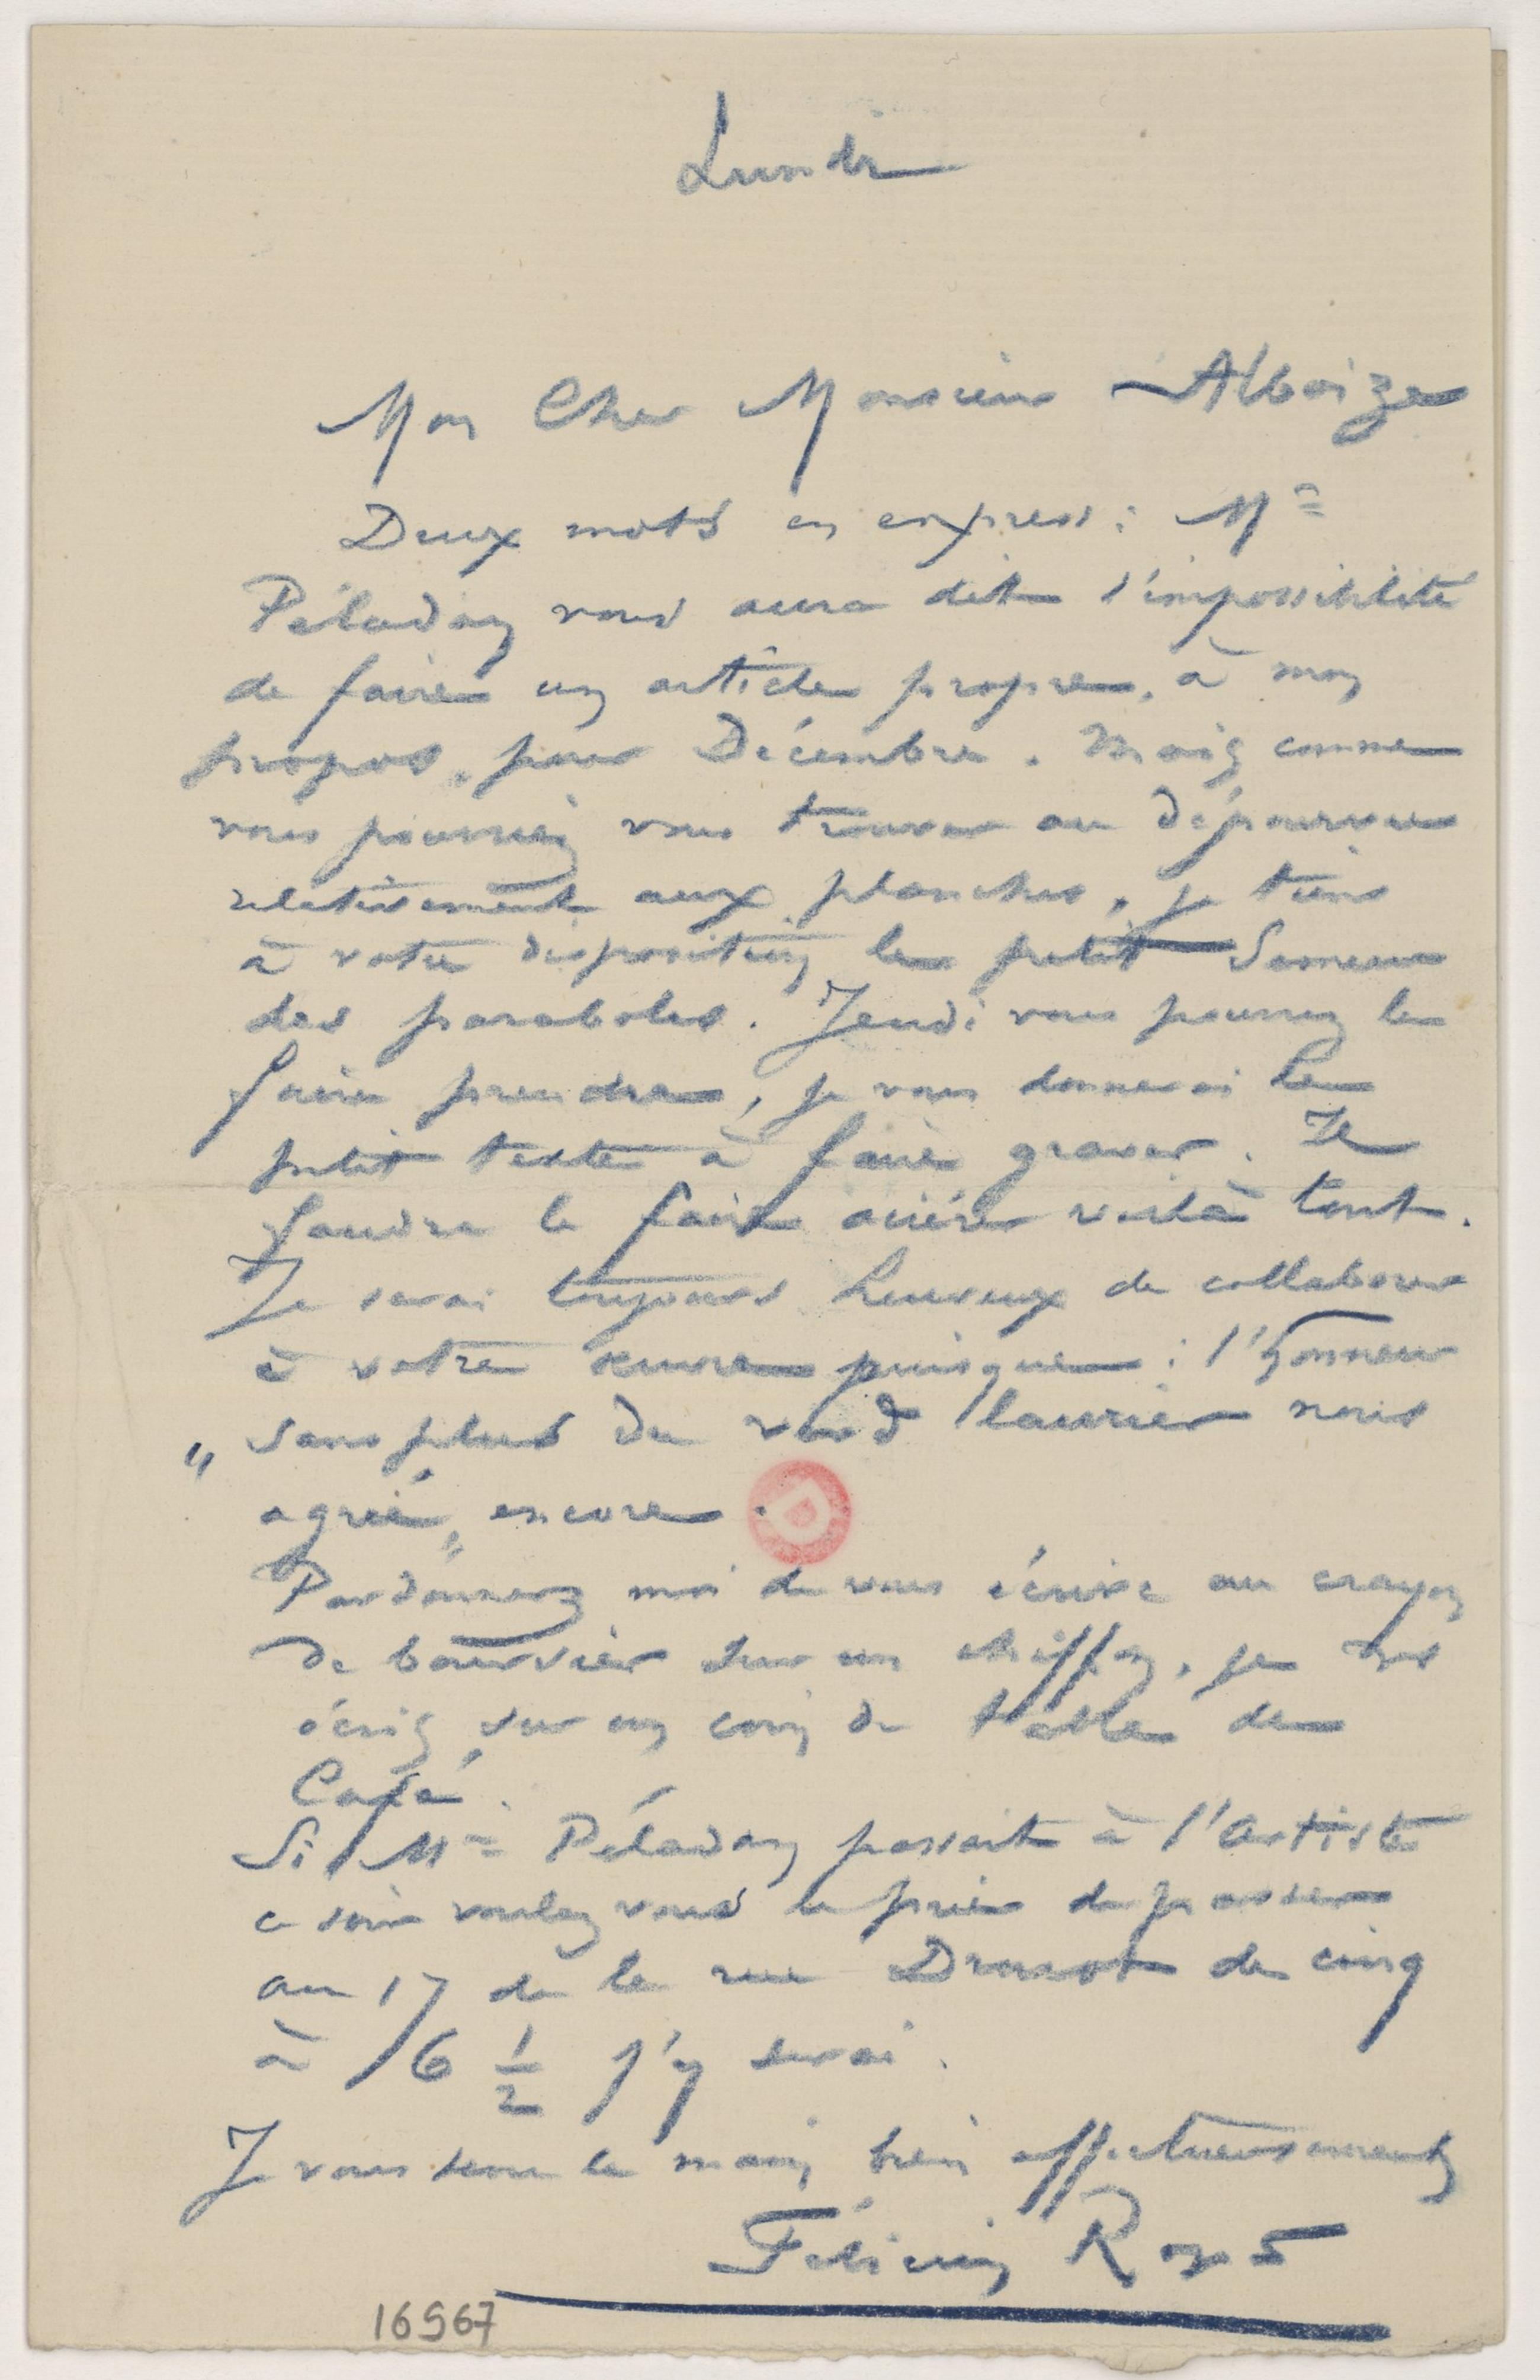 Lundi
Mon Cher Monsieur Alboize
Deux mots en express : Mr
Péladan vous aura dit l'impossibilité
de faire un article propre, à mon
propos, pour Décembre. Mais comme
vous pourriez vous trouver au dépourvu
relativement aux planches, je tiens
à votre disposition le petit Semeur
des paraboles. Jeudi vous pourrez le
faire prendre, je vous donnerai le
petit texte à faire graver. Il
faudra le faire aciérer voilà tout.
Je serai toujours heureux de collaborer
à votre œuvre puisque : l'honneur
„ sans plus du verd laurier nous
agrée „ encore.
Pardonnez moi de vous écrire au crayon
de boursier sur un chiffon, je vous
écris sur un coin de table de
Café.
Si Mr Péladan passait à l'Artiste
ce soir voulez vous le prier de passer
au 17 de la rue Drouot de cinq
à 6 1/2 j'y serai.
Je vous serre la main bien affectueusement
Félicien Rops
16967
D